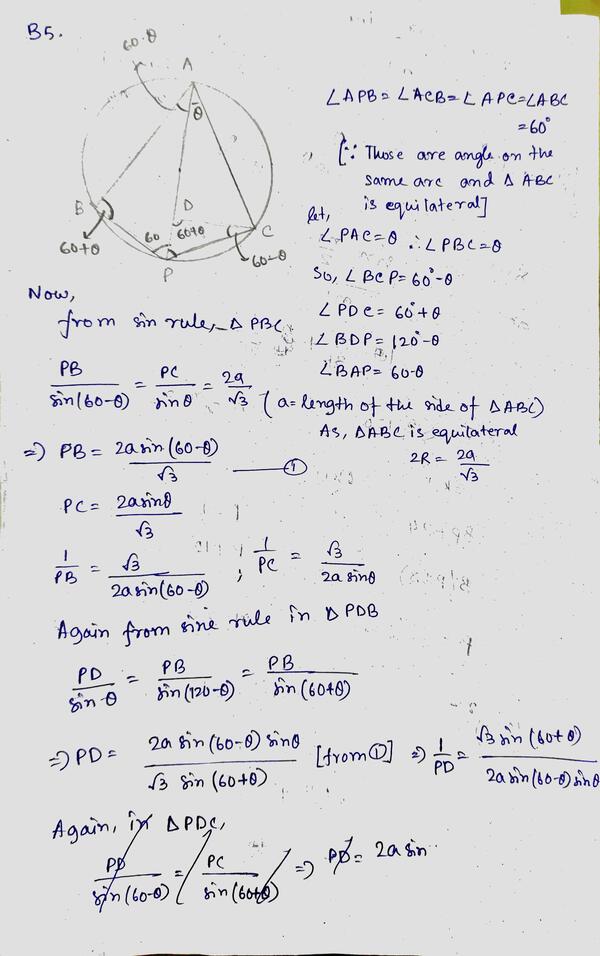 B5.
60-θ
A
θ
B
D
60+θ
60
60+θ
C
60-θ
P
∠APB = ∠ACB = ∠APC = ∠ABC
= 60°
[∵ Those are angle on the
same arc and Δ ABC
is equilateral]
Let,
∠PAC = θ ∴ ∠PBC = θ
So, ∠BCP = 60° - θ
∠PDC = 60° + θ
∠BDP = 120° - θ
∠BAP = 60-θ
Now,
from sin rule, Δ PBC
PB/sin(60-θ) = PC/sinθ = 2a/√3 (a = length of the side of ΔABC)
As, ΔABC is equilateral
2R = 2a/√3
⇒ PB = 2a sin(60-θ)/√3 —— ①
PC = 2a sinθ/√3
1/PB = √3/2a sin(60-θ) ; 1/PC = √3/2a sinθ
Again from sine rule in Δ PDB
PD/sin θ = PB/sin(120-θ) = PB/sin(60+θ)
⇒ PD = 2a sin(60-θ) sinθ/√3 sin(60+θ) [from ①] ⇒ 1/PD = √3 sin(60+θ)/2a sin(60-θ) sinθ
Again, in ΔPDC,
PD/sin(60-θ) = PC/sin(60+θ) ⇒ PD = 2a sin